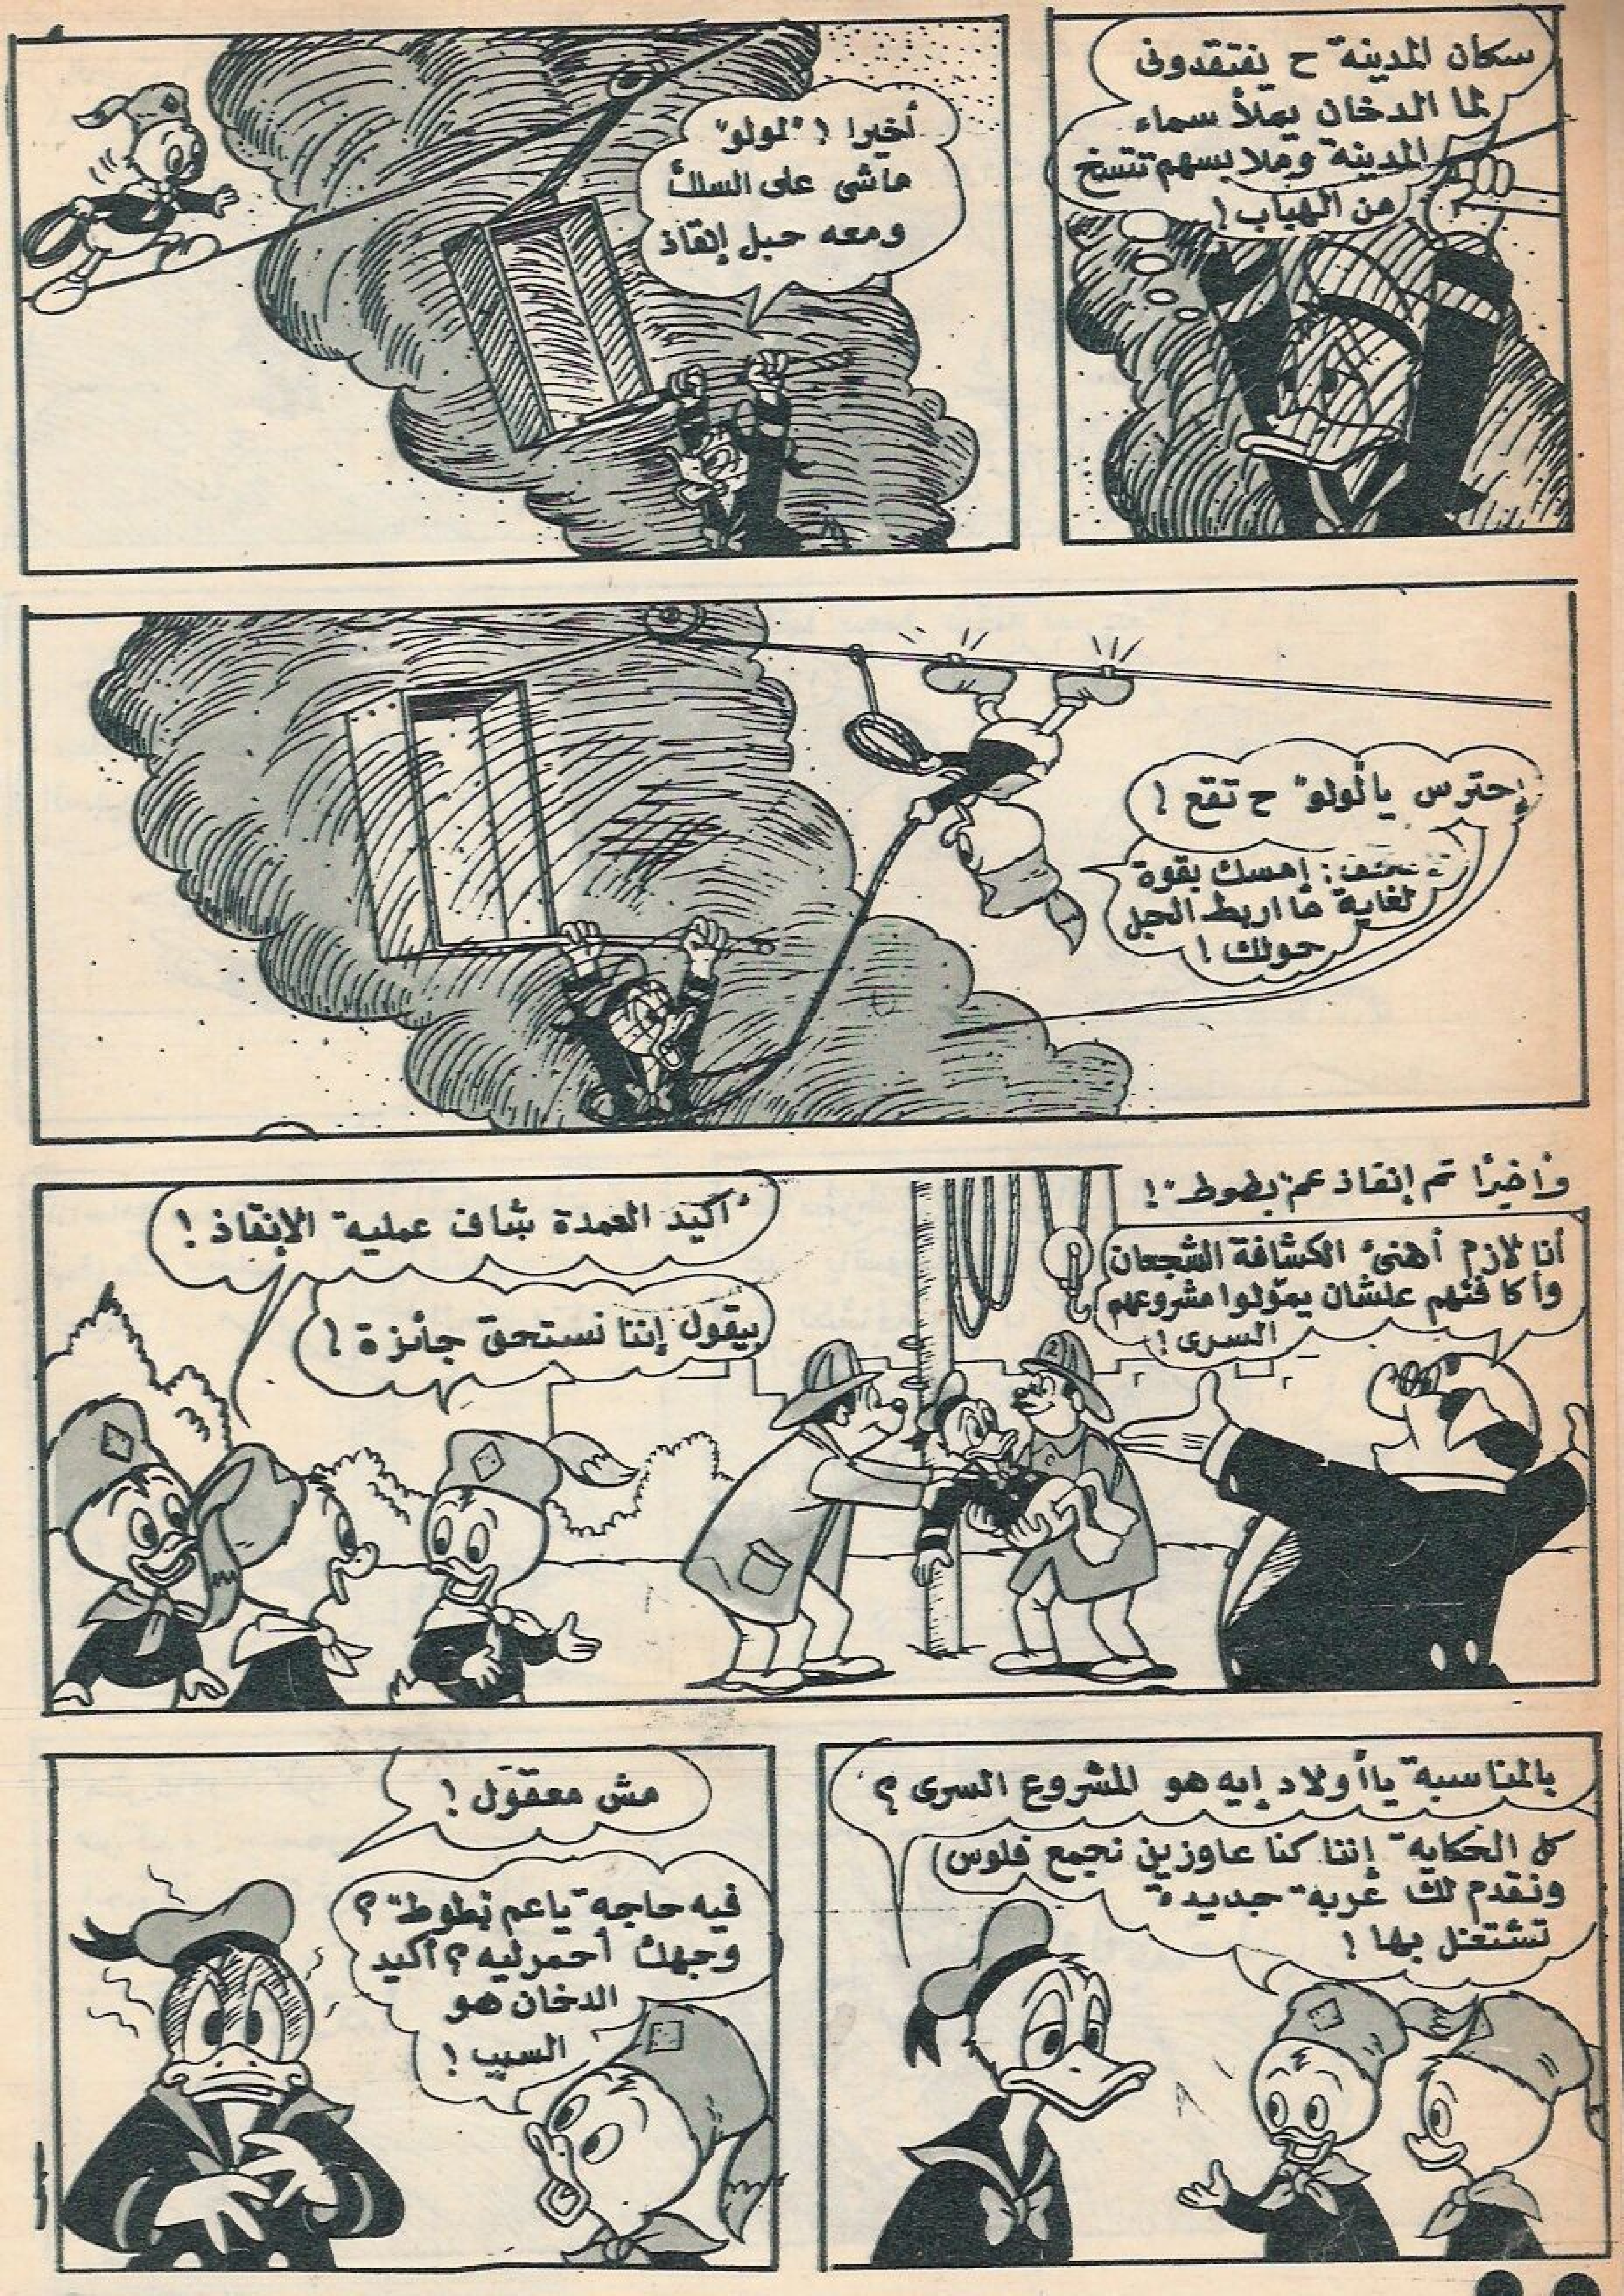 سكان المدينة ح يفتقدونى
لما الدخان يملأ سماء
المدينة وملابسهم تتسخ
من الهباب!
أخيرا! "لولو"
ماشى على السلك
ومعه حبل إنقاذ
إحترس يا"لولو" ح تقع!
إمسك بقوة
لغاية ما اربط الحبل
حولك!
وأخيرًا تم إنقاذ عم "بطوط"!
أنا لازم أهنئ الكشافة الشجعان
وأكافئهم علشان يمولوا مشروعهم
السرى!
أكيد العمدة شاف عملية الإنقاذ!
بيقول إننا نستحق جائزة!
بالمناسبة ياأولاد إيه هو المشروع السرى؟
كل الحكاية إننا كنا عاوزين نجمع فلوس
ونقدم لك عربة جديدة
تشتغل بها!
مش معقول!
فيه حاجة ياعم بطوط؟
وجهك أحمر ليه؟ أكيد
الدخان هو
السبب!